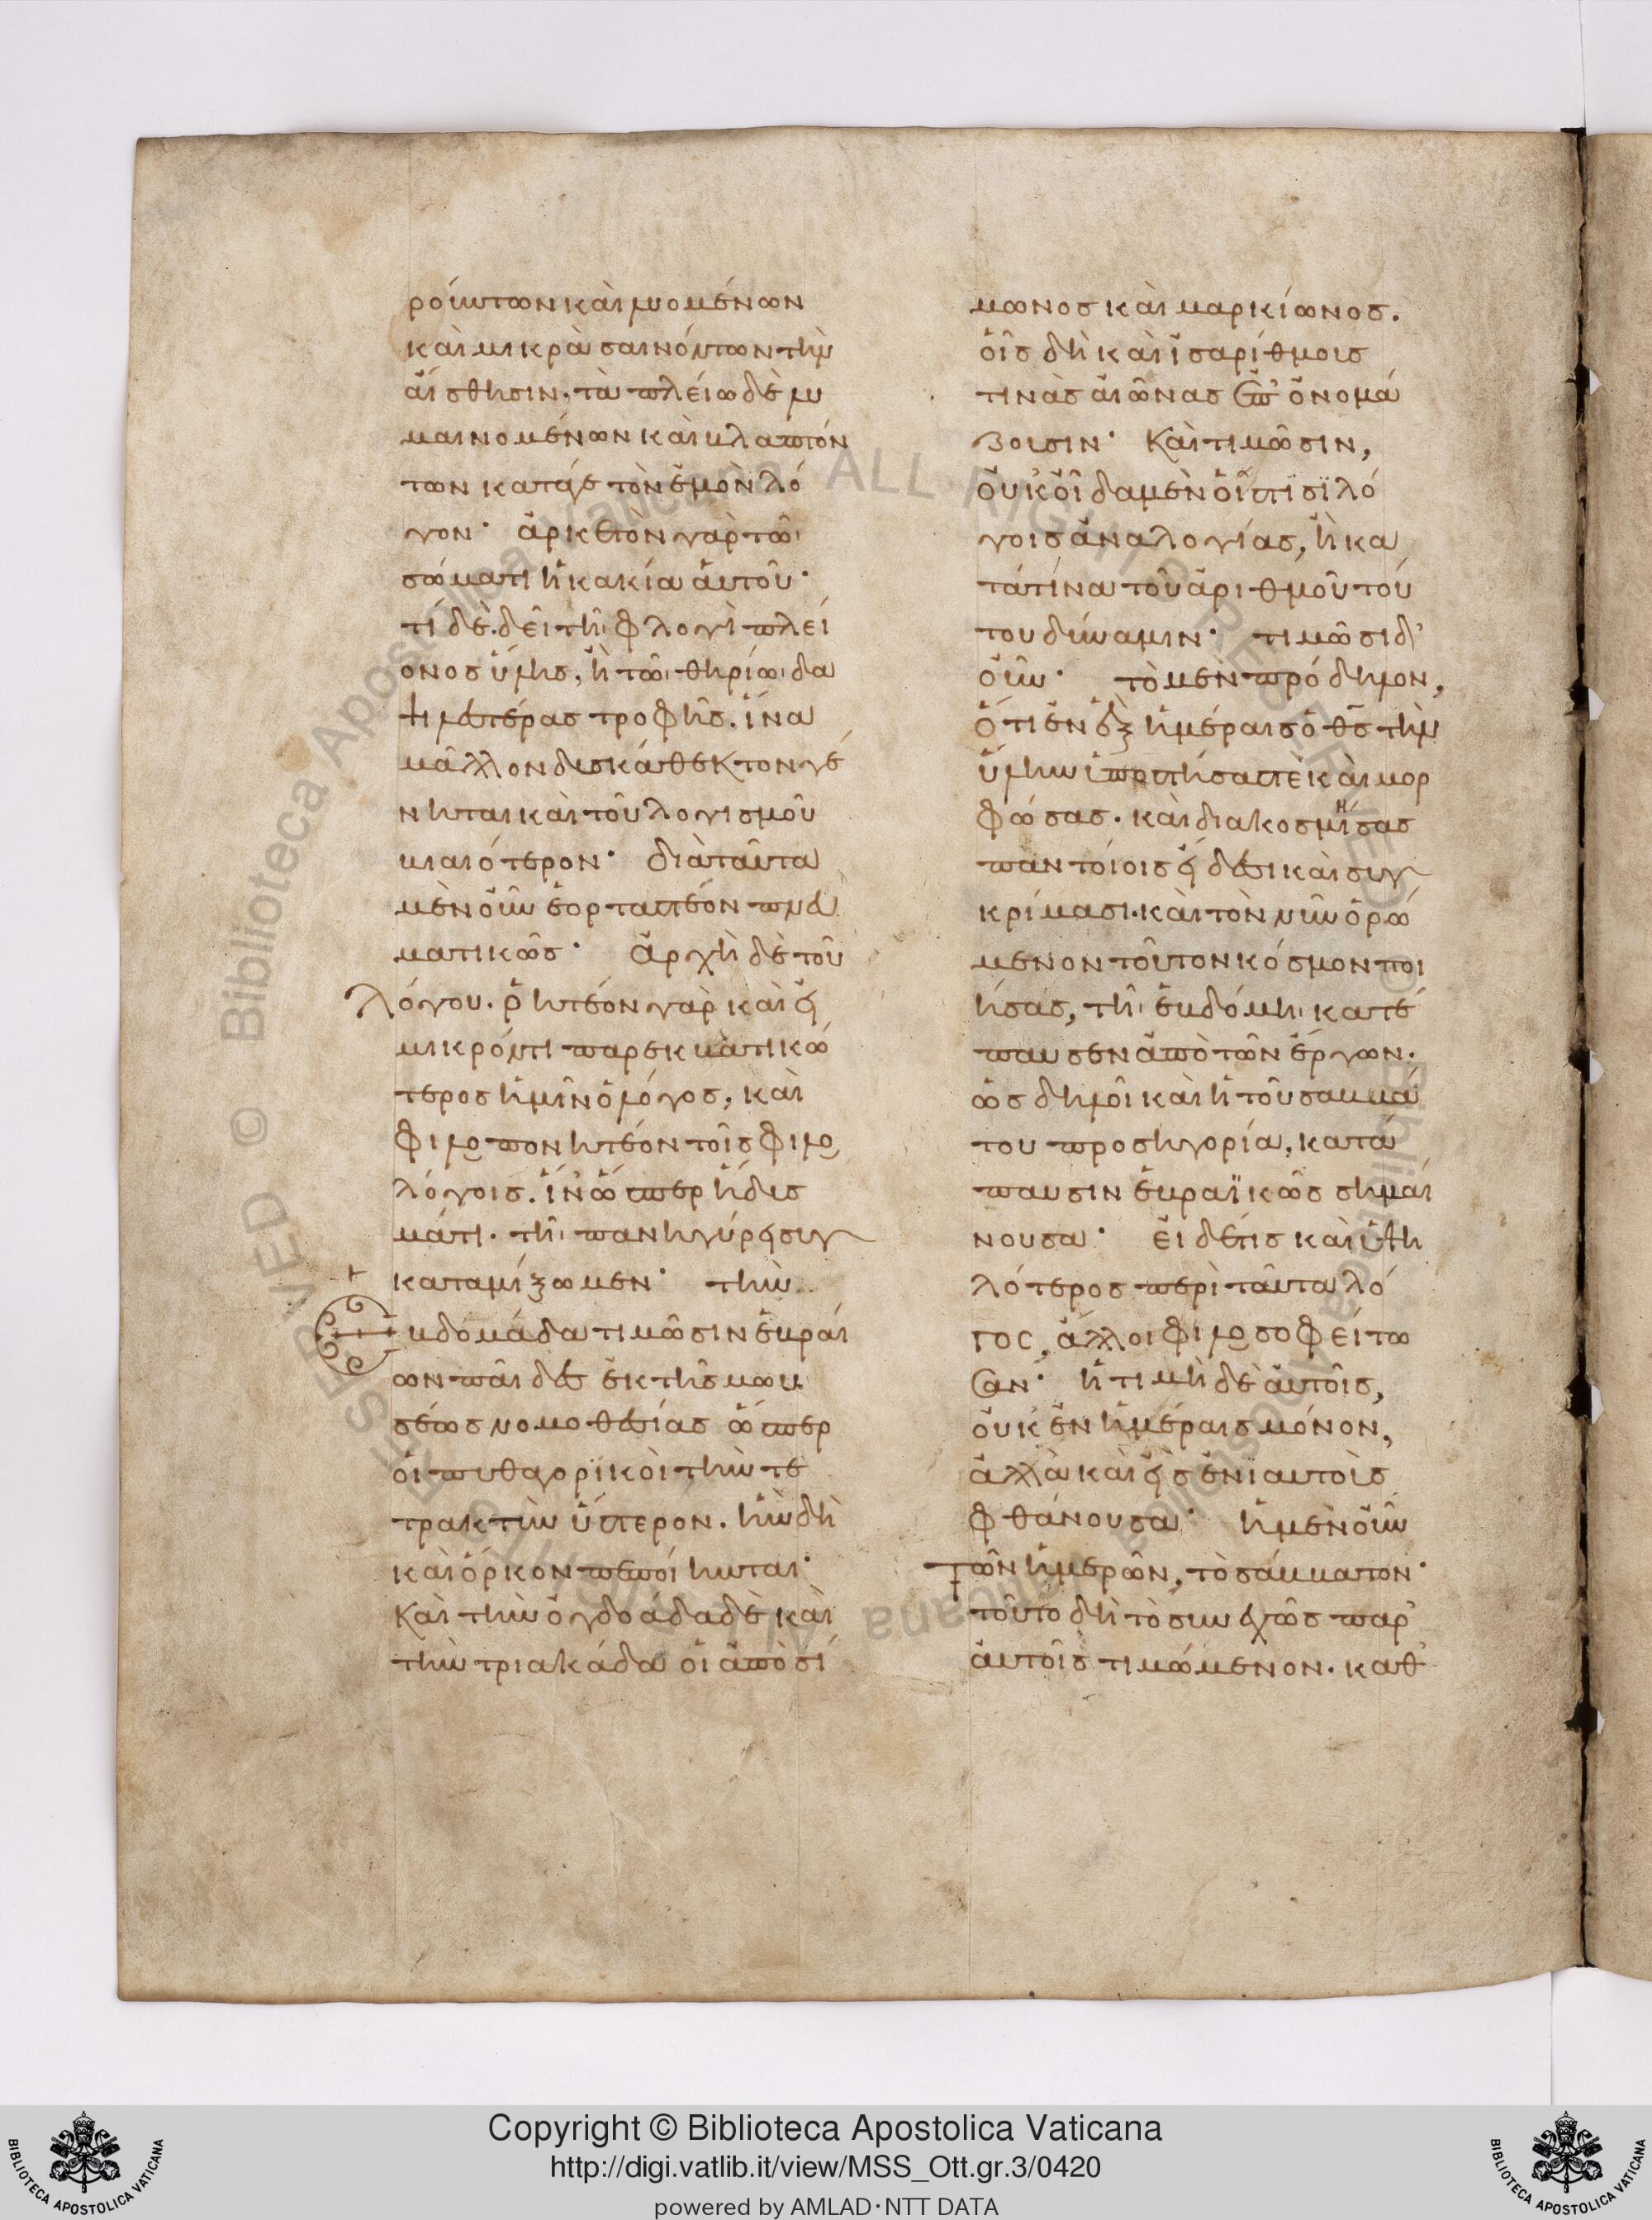 ροϊόντων καὶ λυομένων
καὶ μικρὰ σαινόντων τὴν
αἴσθησιν· τὰ πλείω δὲ λυ
μαινομένων καὶ βλαπτόν
των κατάγε τὸν ἐμὸν λό
γον· ἀρκετὸν γὰρ τῶι
σώματι ἡ κακία αὐτοῦ·
τί δὲ δεῖ τῆι φλογὶ πλεί
ονος ὕλης, ἢ τῶι θηρίωι δα
ψιλεστέρας τροφῆς. ἵνα
μᾶλλον δυσκάθεκτον γέ
νηται καὶ τοῦ λογισμοῦ
βιαιότερον· διὰ ταῦτα
μὲν οὖν ἑορταστέον πνευ
ματικῶς· ἀρχὴ δὲ τοῦ
λόγου. ῥητέον γὰρ καὶ εἰ
μικρόν τι παρεκβατικώ
τερος ἡμῖν ὁ λόγος, καὶ
φιλοπονητέον τοῖς φιλο
λόγοις. ἵν' ὥσπερ ἥδυσ
μάτι. τῆι πανηγύρει συγ
καταμίξωμεν· τὴν
Ἑβδομάδα τιμῶσιν ἑβραί
ων παῖδες ἐκ τῆς μωυ
σέως νομοθεσίας ὥσπερ
οἱ πυθαγορϊκοὶ τὴν τε
τρακτὺν ὕστερον. ἣν δὴ
καὶ ὅρκον πεποίηνται·
Καὶ τὴν ὀγδοάδα δὲ καὶ
τὴν τριακάδα οἱ ἀπὸ σί
μωνος καὶ μαρκίωνος.
οἷς δὴ καὶ ἰσαρίθμους
τινὰς αἰῶνας ἐπονομά
ζουσιν· Καὶ τιμῶσιν,
οὐκ οἶδα μὲν οἷς τισϊ λό
γοις ἀναλογίας, ἢ κα
τά τίνα τοῦ ἀριθμοῦ τού
του δύναμιν· τιμῶσι δ'
οὖν· τὸ μὲν πρόδηλον,
ὅτι ἐν ἓξ ἡμέραις ὁ θς τὴν
ὕλην ὑποστήσας τὲ καὶ μορ
φώσας· καὶ διακοσμήσας
παντοίοις εἴδεσι καὶ συγ
κρίμασι· καὶ τὸν νῦν ὁρώ
μενον τοῦτον κόσμον ποι
ήσας, τῆι ἑβδόμηι κατέ
παυσεν ἀπὸ τῶν ἔργων.
ὡς δηλοῖ καὶ ἡ τοῦ σαββά
του προσηγορία, κατά
παυσιν ἑβραϊκῶς σημαί
νουσα· εἰ δέ τις καὶ ὑψη
λότερος περὶ ταῦτα λό
γος, ἄλλοι φιλοσοφείτω
σαν· ἡ τιμὴ δὲ αὐτοῖς,
οὐκ ἐν ἡμέραις μόνον,
ἀλλὰ καὶ εἰς ἐνϊαυτοὺς
φθάνουσα· ἡ μὲν οὖν
τῶν ἡμερῶν, τὸ σάββατον·
τοῦτο δὴ τὸ συνεχῶς παρ'
αὐτοῖς τιμώμενον. καθ'
ALL RIGHTS RESERVED © Biblioteca Apostolica Vaticana
Copyright © Biblioteca Apostolica Vaticana
http://digi.vatlib.it/view/MSS_Ott.gr.3/0420
powered by AMLAD·NTT DATA
BIBLIOTECA APOSTOLICA VATICANA
BIBLIOTECA APOSTOLICA VATICANA